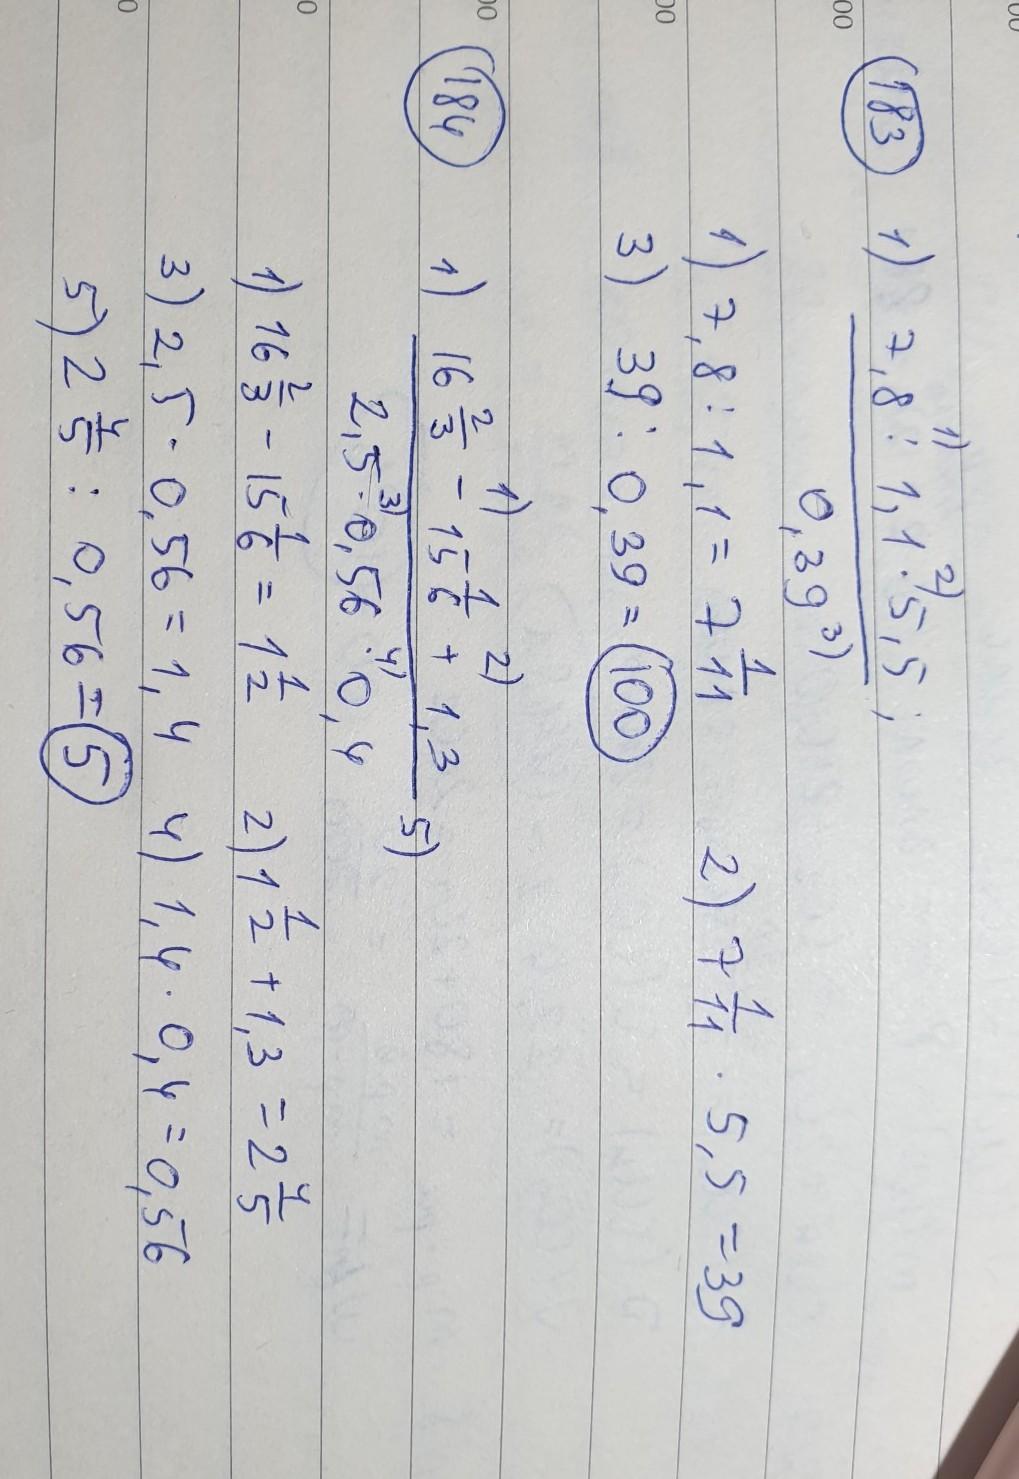 183 1) 7,8 : 1) 1,1 · 2) 5,5 ;
0,39 3)
1) 7,8 : 1,1 = 7 1/11 2) 7 1/11 · 5,5 = 39
3) 39 : 0,39 = 100
184 1) 16 2/3 - 1) 15 1/6 + 2) 1,3
5)
2,5 · 3) 0,56 · 4) 0,4
1) 16 2/3 - 15 1/6 = 1 1/2 2) 1 1/2 + 1,3 = 2 4/5
3) 2,5 · 0,56 = 1,4 4) 1,4 · 0,4 = 0,56
5) 2 4/5 : 0,56 = 5